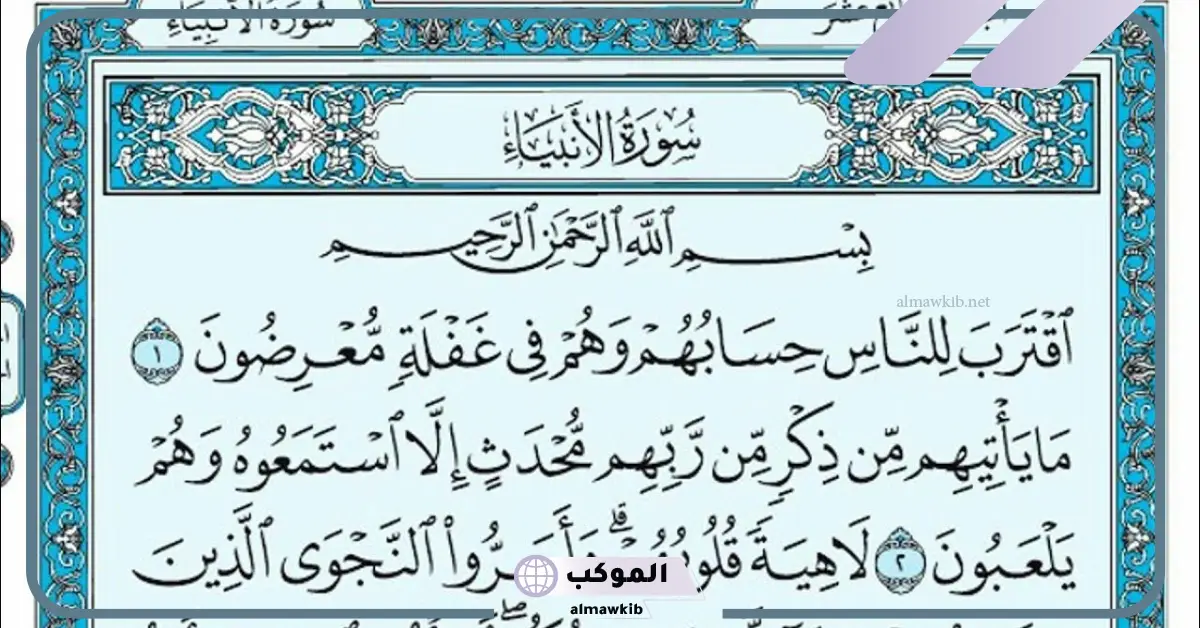 سُورَةُ الأَنبِيَاءِ
سُورَةُ الأَنبِيَاءِ
بِسْمِ ٱللَّهِ ٱلرَّحْمَٰنِ ٱلرَّحِيمِ
almawkib.net
ٱقْتَرَبَ لِلنَّاسِ حِسَابُهُمْ وَهُمْ فِى غَفْلَةٍ مُّعْرِضُونَ ١
مَا يَأْتِيهِم مِّن ذِكْرٍ مِّن رَّبِّهِم مُّحْدَثٍ إِلَّا ٱسْتَمَعُوهُ وَهُمْ
يَلْعَبُونَ ٢ لَاهِيَةً قُلُوبُهُمْ ۗ وَأَسَرُّوا۟ ٱلنَّجْوَى ٱلَّذِينَ
الموكب
almawkib